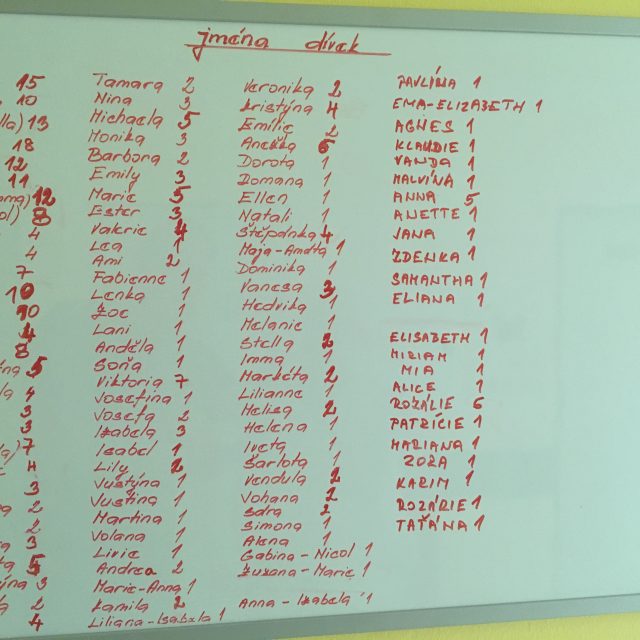 jména dívek
15
10
lla) 13
18
12
11
oma) 12
ol) 8
4
4
7
10
10
4
8
5
4
3
3
7
4
3
2
2
3
5
3
2
4
Tamara 2
Nina 3
Michaela 5
Monika 3
Barbora 2
Emily 3
Marie 5
Ester 3
Valerie 4
Lea 1
Ami 2
Fabienne 1
Lenka 1
Zoe 1
Lani 1
Anděla 1
Soňa 1
Viktoria 7
Josefina 1
Josefa 2
Izabela 3
Isabel 1
Lily 2
Justýna 1
Justina 1
Martina 1
Jolana 1
Livie 1
Andrea 2
Marie-Anna 1
Kamila 2
Liliana-Isabela 1
Veronika 2
Kristýna 4
Emílie 2
Anežka 6
Dorota 1
Domana 1
Ellen 1
Natali 1
Štěpánka 4
Maja-Améta 1
Dominika 1
Vanesa 3
Hedvika 1
Melanie 1
Stella 2
Imma 1
Markéta 2
Lilianne 1
Melisa 2
Helena 1
Iveta 1
Šarlota 1
Vendula 2
Johana 2
Sára 2
Simona 1
Alena 1
Gabina-Nicol 1
Zuzana-Marie 1
Anna-Izabela 1
PAVLÍNA 1
EMA-ELIZABETH 1
AGNES 1
KLAUDIE 1
VANDA 1
MALVÍNA 1
ANNA 5
ANETTE 1
JANA 1
ZDENKA 1
SAMANTHA 1
ELIANA 1
ELISABETH 1
MIRIAM 1
MIA 1
ALICE 1
ROZÁLIE 6
PATRÍCIE 1
MARIANA 1
ZORA 1
KARIM 1
ROZÁRIE 1
TAŤÁNA 1